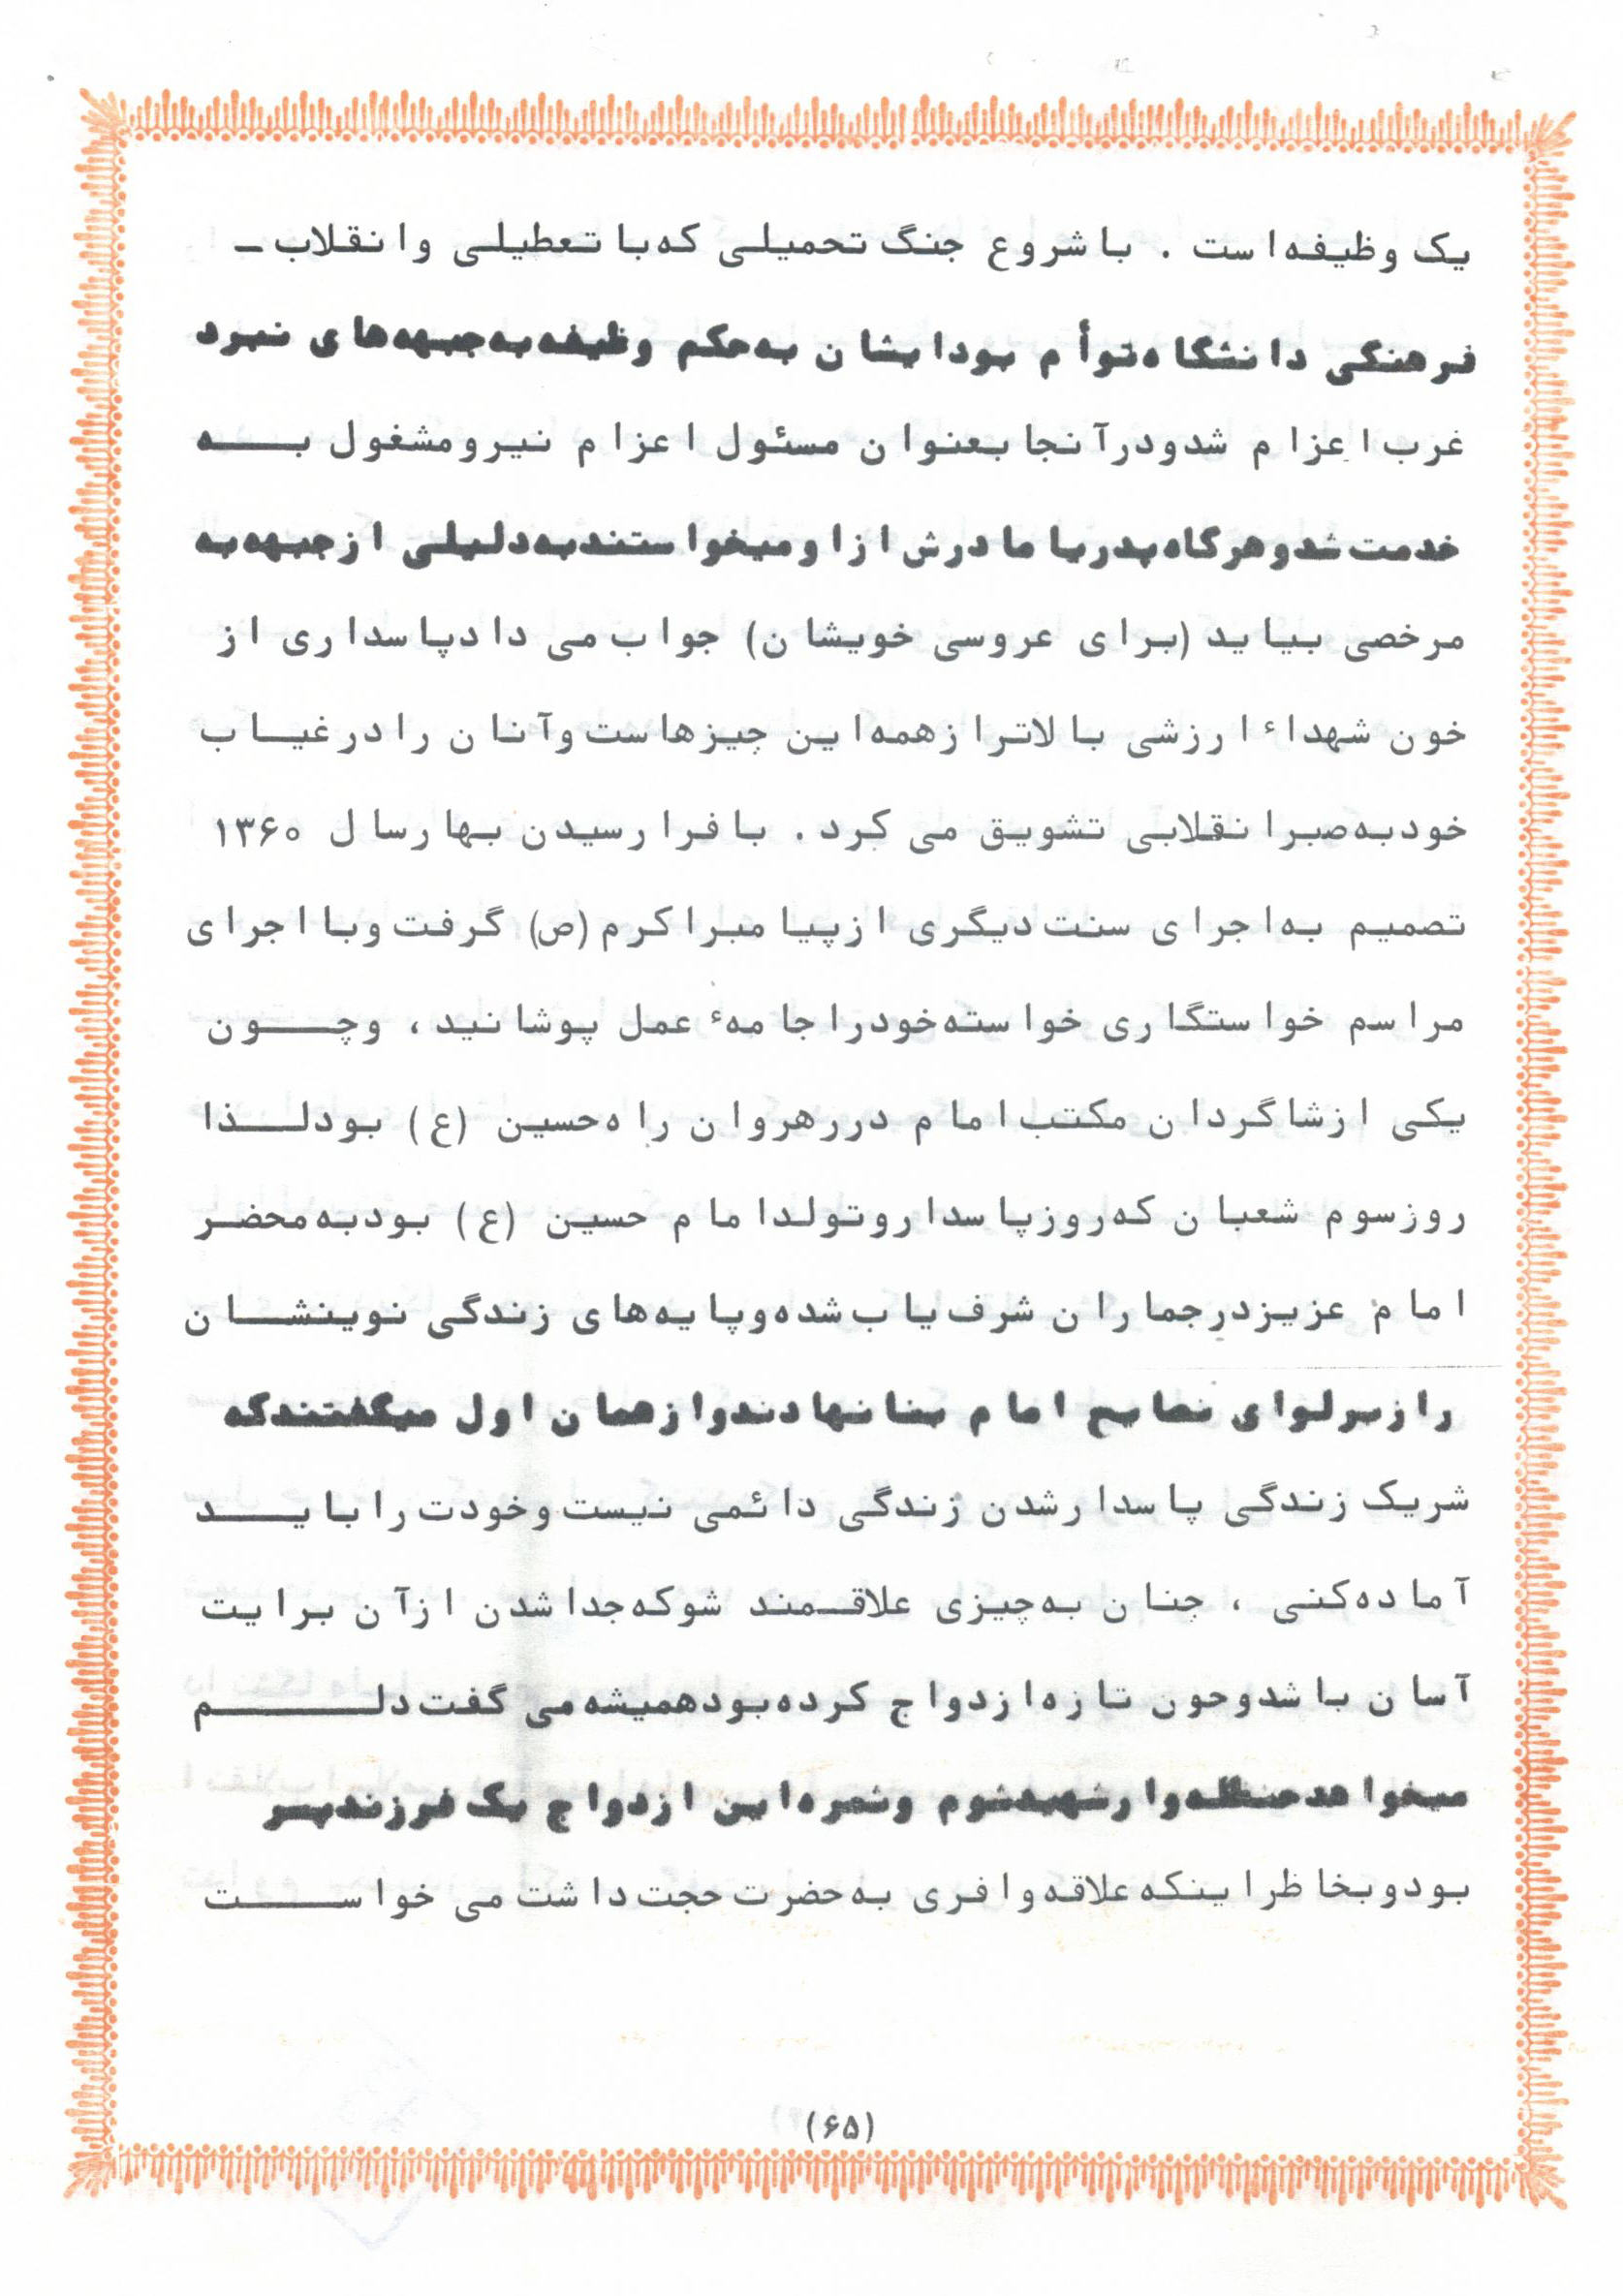 یک وظیفه است . با شروع جنگ تحمیلی که با تعطیلی وانقلاب ـ
فرهنگی دانشگاه توأم بود ایشان به حکم وظیفه به جبهه های نبرد
غرب اعزام شد و در آنجا بعنوان مسئول اعزام نیرو مشغول بـــه
خدمت شد و هرگاه پدر یا مادرش از او میخواستند به دلیلی از جبهه به
مرخصی بیاید (برای عروسی خویشان) جواب می داد پاسداری از
خون شهداء ارزشی بالاتر از همه این چیزهاست و آنان را در غیــاب
خود به صبر انقلابی تشویق می کرد . با فرا رسیدن بهار سال ۱۳۶۰
تصمیم به اجرای سنت دیگری از پیامبر اکرم (ص) گرفت و با اجرای
مراسم خواستگاری خواسته خود را جامهٔ عمل پوشانید ، وچـــون
یکی از شاگردان مکتب امام در رهروان راه حسین (ع) بود لـــذا
روز سوم شعبان که روز پاسدار و تولد امام حسین (ع) بود به محضر
امام عزیز در جماران شرف یاب شده و پایه های زندگی نوینشــان
را زیر لوای نصایح امام بنا نهادند و از همان اول میگفتند که
شریک زندگی پاسدار شدن زندگی دائمی نیست و خودت را بایـــد
آماده کنی ، چنان به چیزی علاقــمند شو که جدا شدن از آن برایت
آسان باشد و چون تازه ازدواج کرده بود همیشه می گفت دلــــــم
میخواهد حنظله وار شهید شوم و ثمره این ازدواج یک فرزند پسر
بود و بخاطر اینکه علاقه وافری به حضرت حجت داشت می خواســـت
(۶۵)